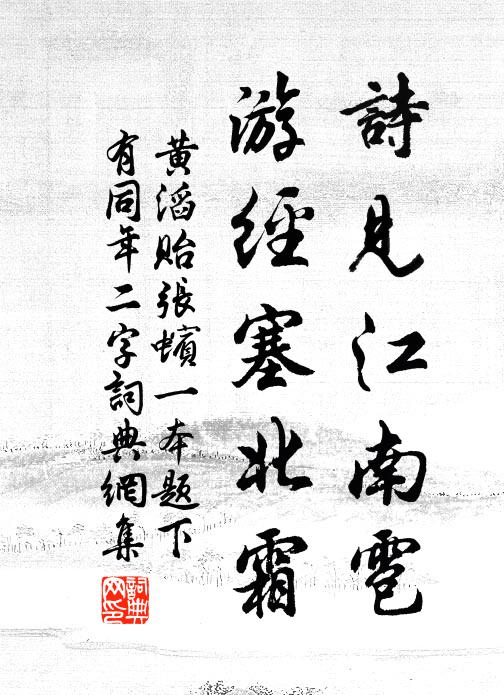 詩見江南雹
游經塞北霜
黄滔貽張蠙一本題下
有同年二字詞典網集
詞典
网印